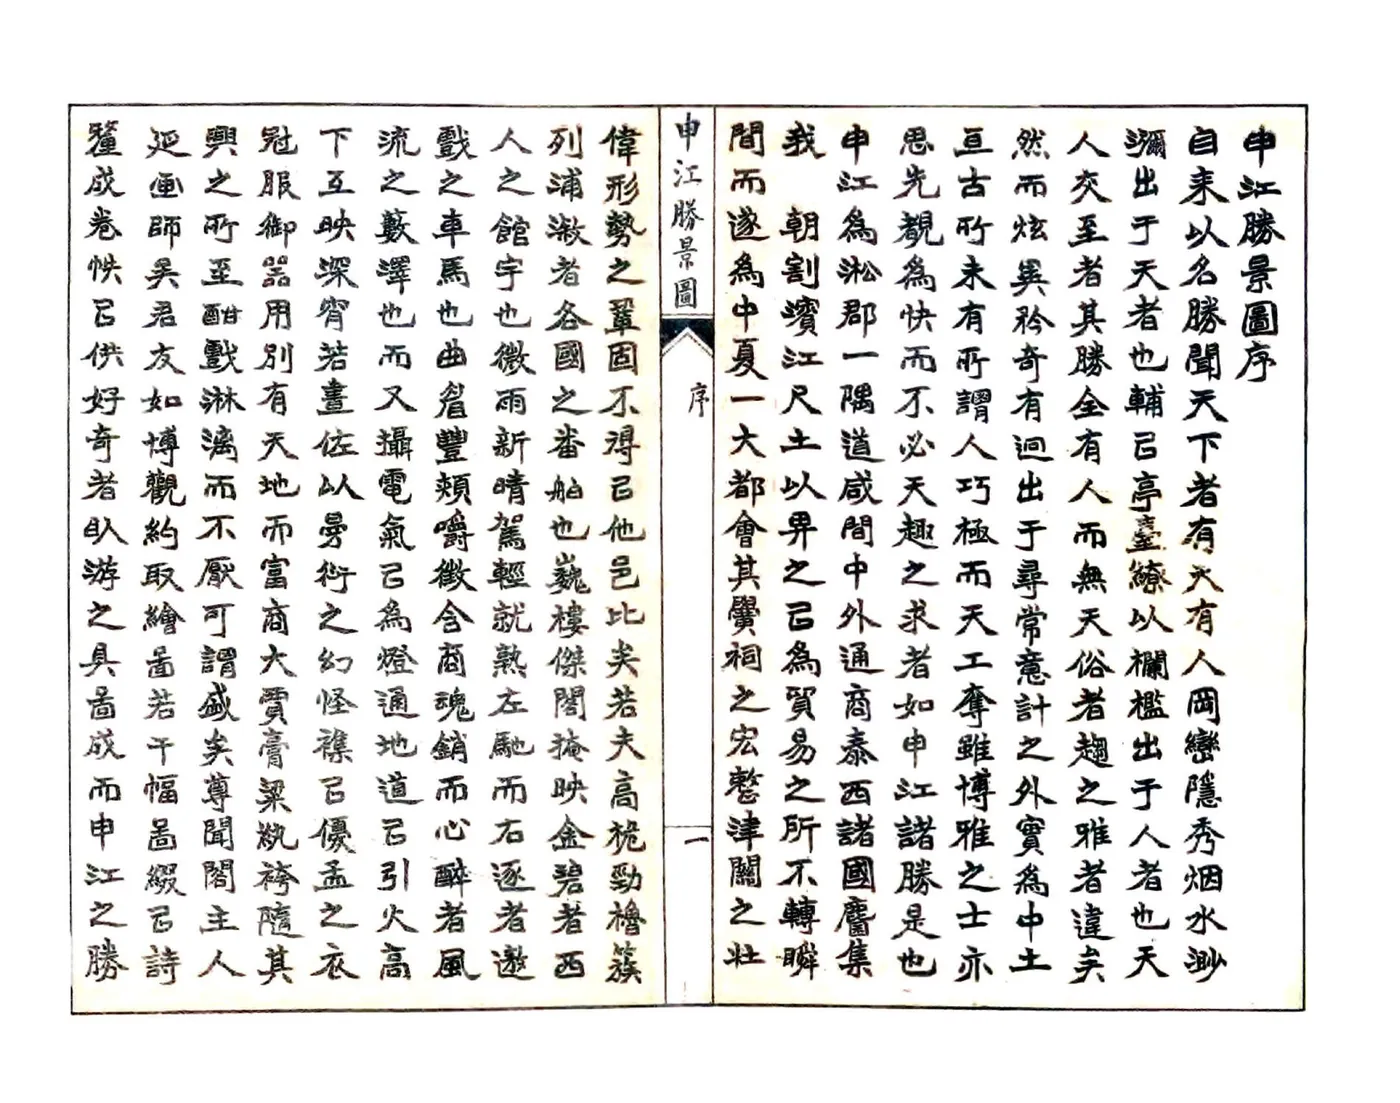 申江勝景圖序
自来以名勝聞天下者有天有人岡巒隱秀烟水渺
瀰出于天者也輔㠯亭臺繚以欄檻出于人者也天
人交至者其勝全有人而無天俗者趨之雅者違矣
然而炫異矜奇有迥出于尋常意計之外實為中土
亘古所未有所謂人巧極而天工奪雖博雅之士亦
思先覩為快而不必天趣之求者如申江諸勝是也
申江為淞郡一隅道咸間中外通商泰西諸國麕集
我 朝割濱江尺土以畀之㠯為貿易之所不轉瞬
間而遂為中夏一大都會其黌祠之宏整津關之壯
申江勝景圖
序
一
偉形勢之鞏固不得㠯他邑比矣若夫高桅勁櫓簇
列浦漵者各國之番舶也巍樓傑閣掩映金碧者西
人之館宇也微雨新晴駕輕就熟左馳而右逐者遨
戲之車馬也曲眉豐頰嚼徵含商魂銷而心醉者風
流之藪澤也而又攝電氣㠯為燈通地道㠯引火高
下互映深宵若晝佐以曼衍之幻怪襍㠯優孟之衣
冠服御器用別有天地而富商大賈膏粱紈袴隨其
興之所至酣戲淋漓而不厭可謂盛矣尊聞閣主人
延画師吳君友如博觀約取繪啚若干幅啚綴㠯詩
釐成卷帙㠯供好奇者臥游之具啚成而申江之勝